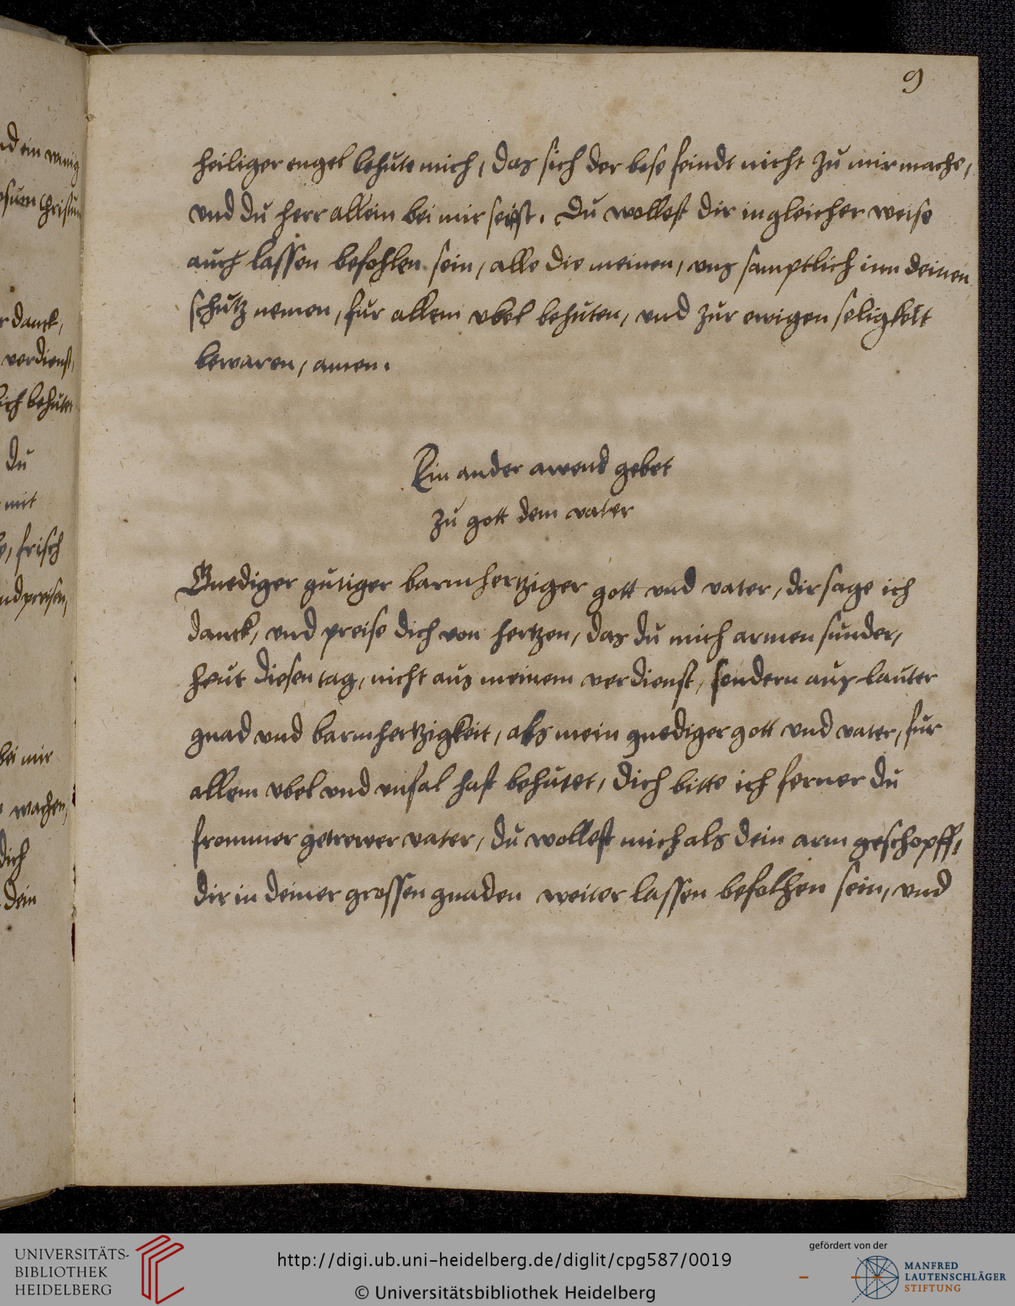 9
heiliger engel behute mich, das sich der bese feindt nicht zu mir mache,
und du herr allein bei mir seist. Du wollest dir in gleicher weise
auch lassen befohlen sein, alle die meinen, uns samptlich inn deinen
schutz nemen, fur allem ubel behuten, und zur ewigen seligkeit
bewaren, amen.
Ein ander awend gebet
zu gott dem vater
Gnediger gutiger barmhertziger gott und vater, dir sage ich
danck, und preise dich von hertzen, das du mich armen sunder,
heut diesen tag, nicht aus meinem verdienst, sondern aus lauter
gnad und barmhertzigkeit, als mein gnediger gott und vater, fur
allem ubel und unfal hast behutet, Dich bitte ich ferner du
frommer getrewer vater, du wollest mich als dein arm geschopff,
dir in deiner grossen gnaden weiter lassen befolhen sein, und
nd ein wenig
danck,
verdienst,
behute
du
mit
frisch
nd preisen,
bei mir
wachen,
dich
dein
UNIVERSITÄTS-
BIBLIOTHEK
HEIDELBERG
http://digi.ub.uni-heidelberg.de/diglit/cpg587/0019
© Universitätsbibliothek Heidelberg
gefördert von der
MANFRED
LAUTENSCHLÄGER
STIFTUNG